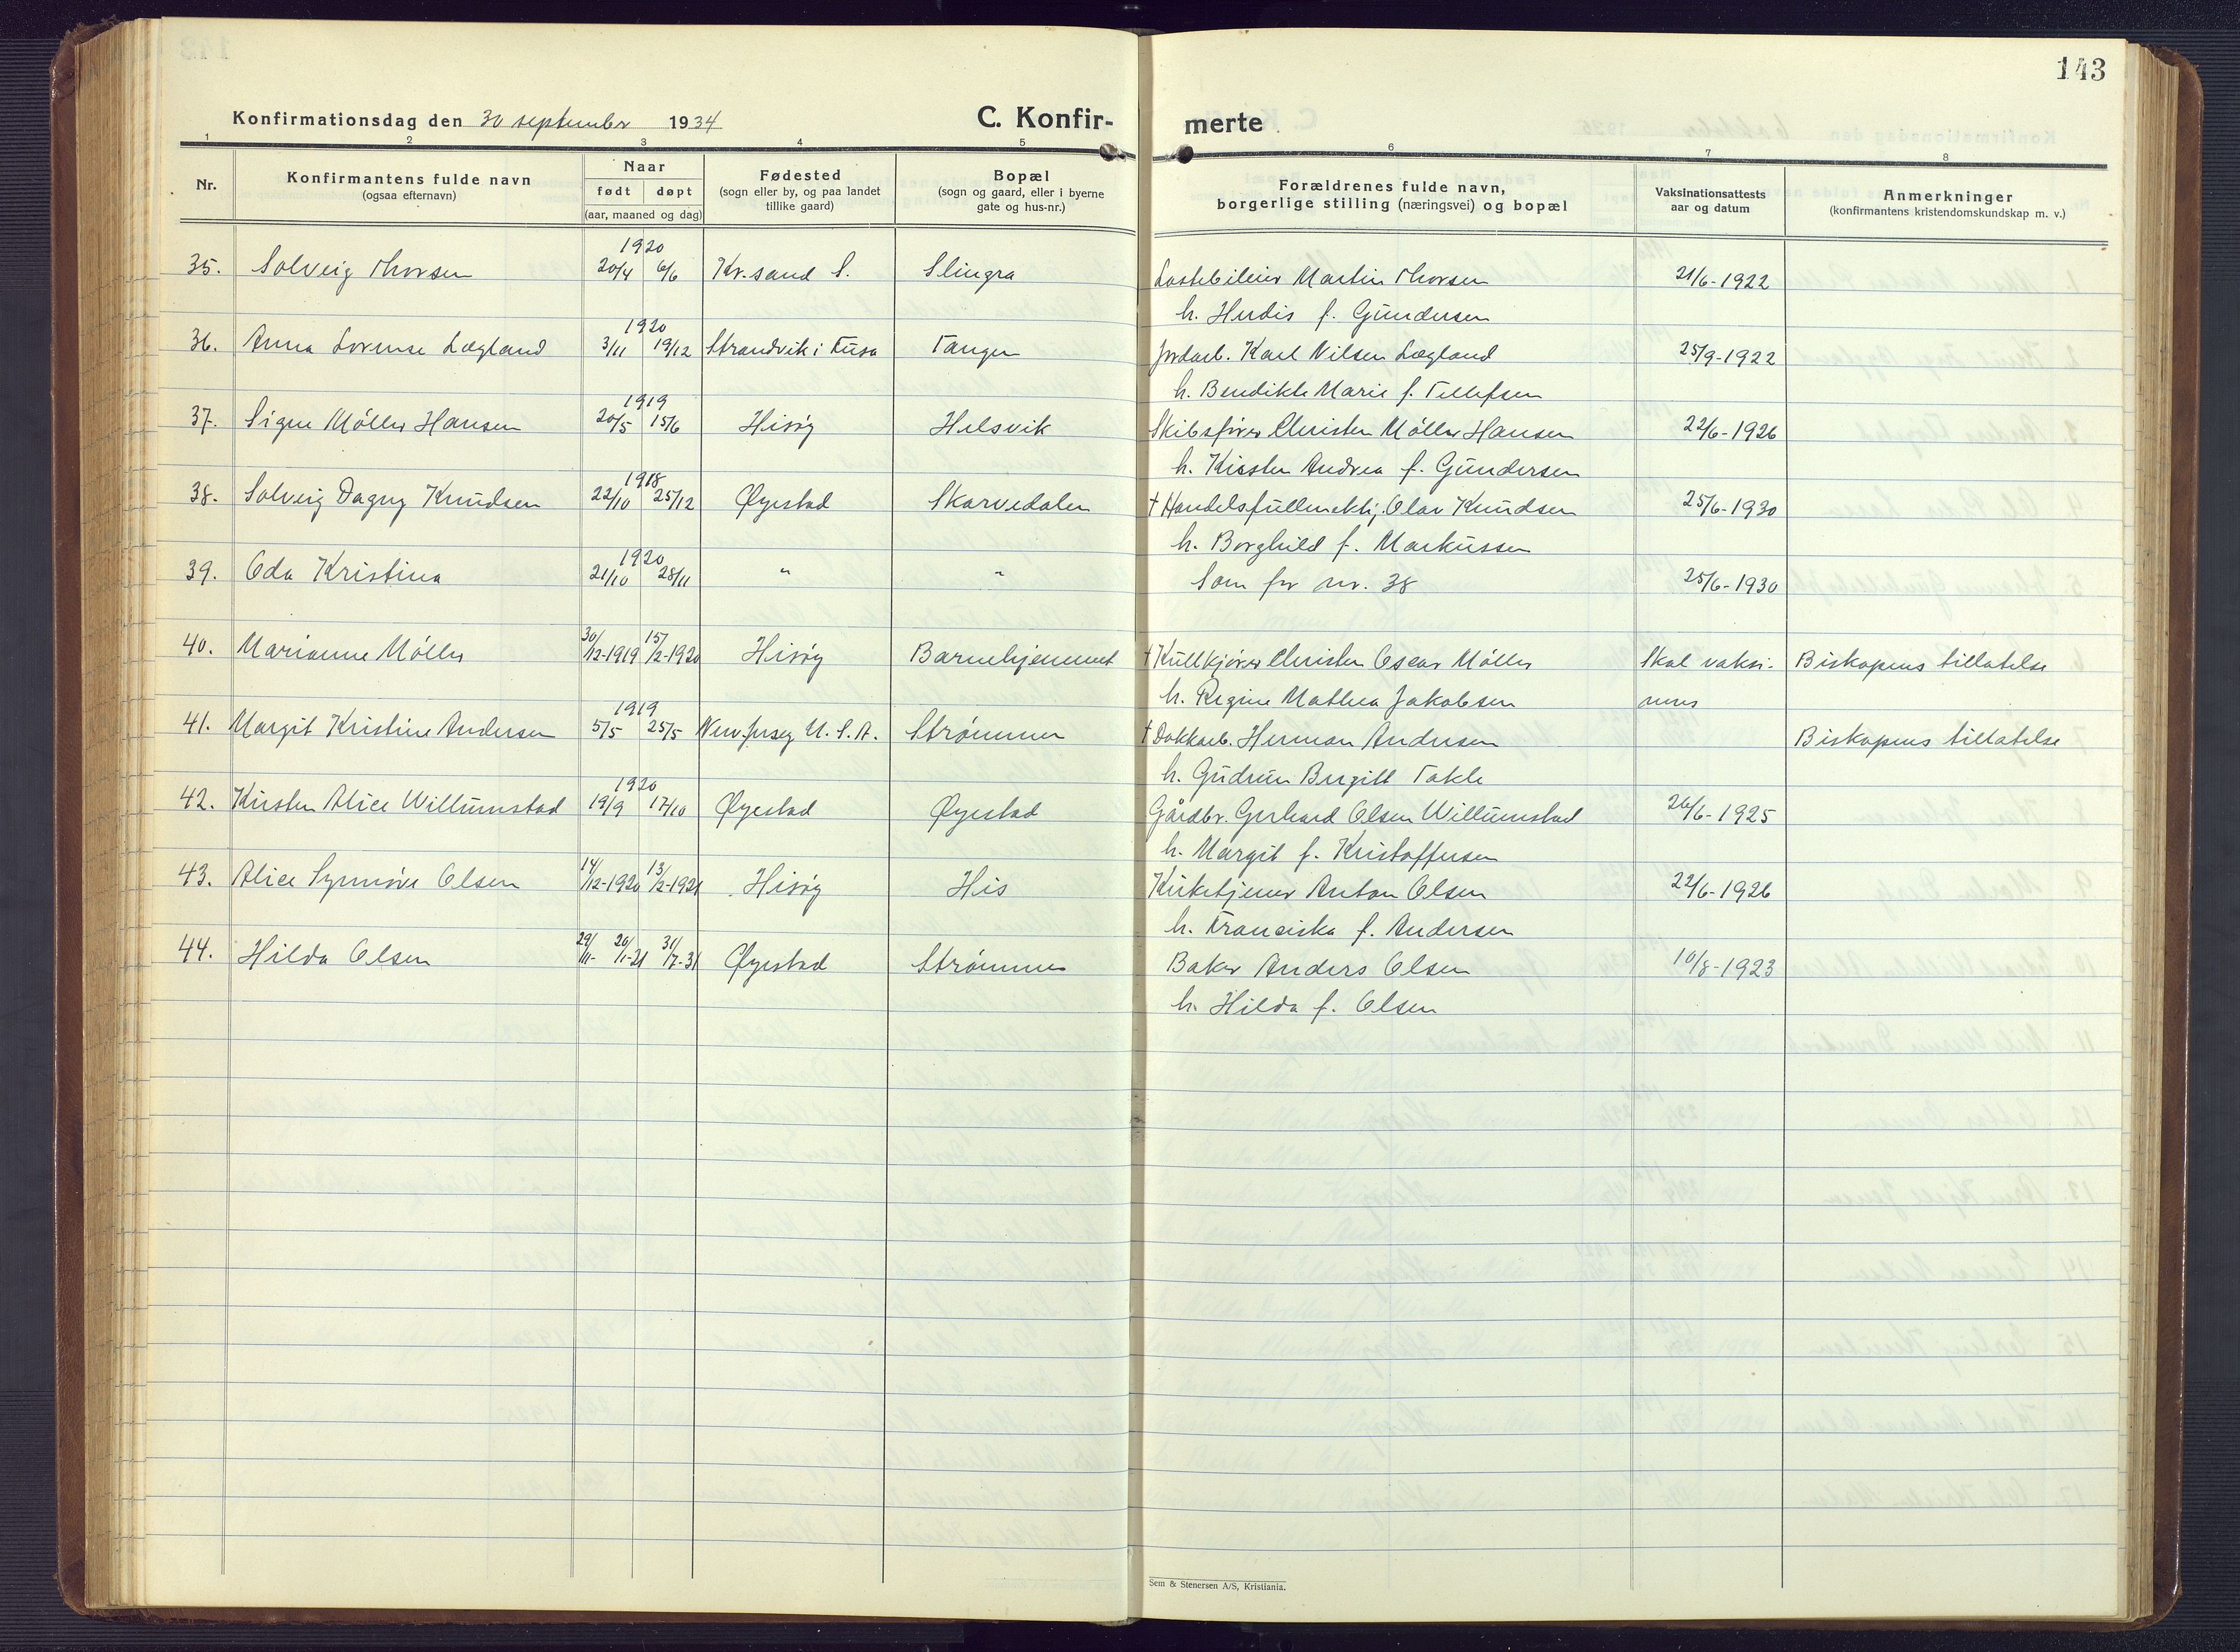 143
Konfirmationsdag den 30 september 1934
C. Konfir-
merte
1 2 3 4 5 6 7 8
Nr.
Konfirmantens fulde navn
(ogsaa efternavn)
Naar
født døpt
(aar, maaned og dag)
Fødested
(sogn eller by, og paa landet
tillike gaard)
Bopæl
(sogn og gaard, eller i byerne
gate og hus-nr.)
Forældrenes fulde navn,
borgerlige stilling (næringsvei) og bopæl
Vaksinationsattests
aar og datum
Anmerkninger
(konfirmantens kristendomskundskap m. v.)
1920
35. Solveig Thorsen 20/4 6/6 Kr.sand S. Slingra Lastebileier Martin Thorsen 21/6-1922
h. Herdis f. Gundersen
1920
36. Anna Lovense Lægland 3/11 19/12 Strandvik i Fusa Tangen Jordarb. Karl Nilsen Lægland 25/9-1922
h. Bendikte Marie f. Tellefsen
1919
37. Signe Möller Hansen 20/5 15/6 Hisøy Helsvik Skibsfører Christen Möller Hansen 22/6-1926
h. Kirsten Andrea f. Gundersen
1918
38. Solveig Dagny Knudsen 22/10 25/12 Øyestad Skarvedalen † Handelsfullmektig Olav Knudsen 25/6-1930
h. Borghild f. Markussen
1920
39. Oda Kristina 21/10 28/11 " " Som for nr. 38 25/6-1930
40. Marianne Möller 30/12-1919 15/2-1920 Hisøy Barnehjemmet † Kullkjører Christen Oscar Möller Skal vaksi- Biskopens tillatelse
h. Regine Mathea Jakobsen neres
1919
41. Margit Kristine Andersen 5/5 25/5 New Jersey U. S. A. Strømmen † Dokkarb. Herman Andersen Biskopens tillatelse
h. Gudrun Birgitt Takle
1920
42. Kirsten Alice Willumstad 19/9 17/10 Øyestad Øyestad Gårdbr. Gerhard Olsen Willumstad 26/6-1925
h. Margit f. Kristoffersen
43. Alice Synnöve Olsen 14/12-1920 13/2-1921 Hisøy His Kirketjener Anton Olsen 22/6-1926
h. Franciska f. Andersen
44. Hilda Olsen 29/11- 20/1-21 31/7-31 Øyestad Strømmen Baker Anders Olsen 10/8-1923
h. Hilda f. Olsen
Sem & Stenersen A/S, Kristiania.